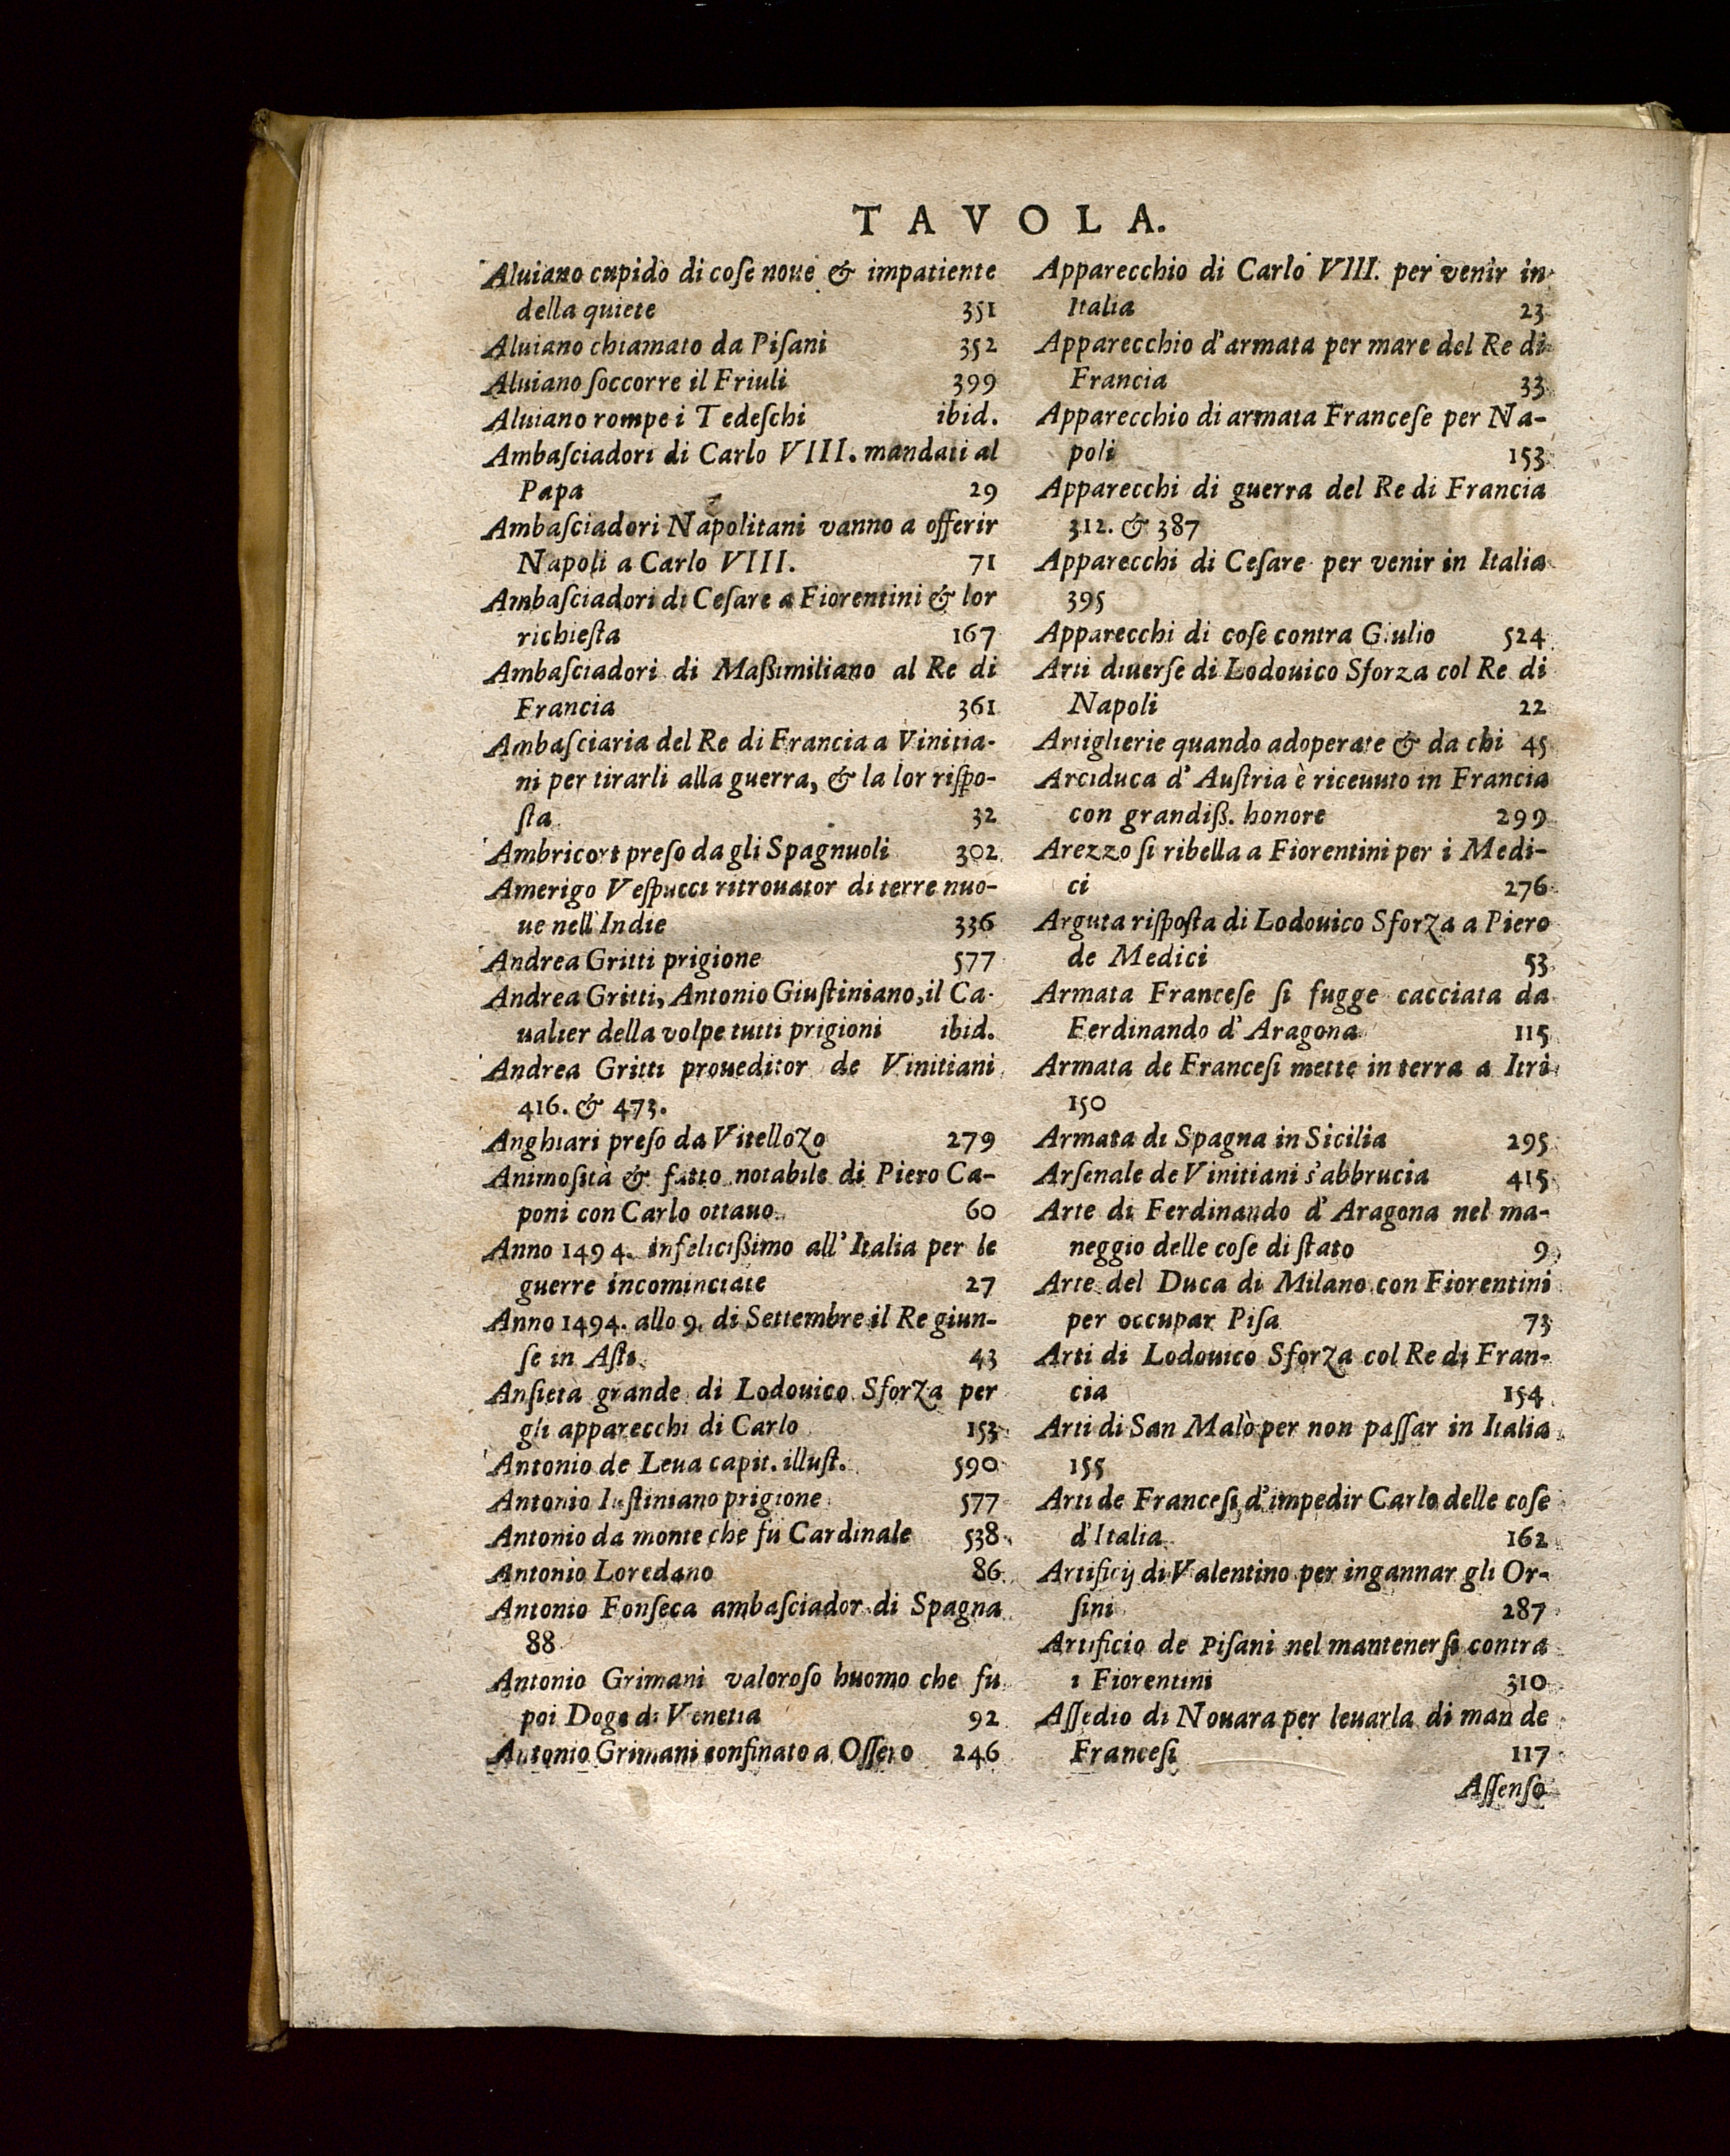 TAVOLA.
Aluiano cupido di coſe noue & impatiente
della quiete 351
Aluiano chiamato da Piſani 352
Aluiano ſoccorre il Friuli 399
Aluiano rompe i Tedeſchi ibid.
Ambaſciadori di Carlo VIII. mandati al
Papa 29
Ambaſciadori Napolitani vanno a offerir
Napoli a Carlo VIII. 71
Ambaſciadori di Ceſare a Fiorentini & lor
richieſta 167
Ambaſciadori di Maßimiliano al Re di
Francia 361
Ambaſciaria del Re di Francia a Vinitia-
ni per tirarli alla guerra, & la lor riſpo-
ſta 32
Ambricort preſo da gli Spagnuoli 302
Amerigo Veſpucci ritrouator di terre nuo-
ue nell'Indie 336
Andrea Gritti prigione 577
Andrea Gritti, Antonio Giuſtiniano, il Ca-
ualier della volpe tutti prigioni ibid.
Andrea Gritti proueditor de Vinitiani
416. & 473.
Anghiari preſo da Vitellozo 279
Animoſità & fatto notabile di Piero Ca-
poni con Carlo ottauo 60
Anno 1494. infelicißimo all'Italia per le
guerre incominciate 27
Anno 1494. allo 9. di Settembre il Re giun-
ſe in Aſti. 43
Anſietà grande di Lodouico Sforza per
gli apparecchi di Carlo 153
Antonio de Leua capit. illuſt. 590
Antonio Iuſtiniano prigione 577
Antonio da monte che fu Cardinale 538
Antonio Loredano 86
Antonio Fonſeca ambaſciador di Spagna
88
Antonio Grimani valoroſo huomo che fu
poi Doge di Venetia 92
Antonio Grimani confinato a Oſſero 246
Apparecchio di Carlo VIII. per venir in
Italia 23
Apparecchio d'armata per mare del Re di
Francia 33
Apparecchio di armata Franceſe per Na-
poli 153
Apparecchi di guerra del Re di Francia
312. & 387
Apparecchi di Ceſare per venir in Italia
395
Apparecchi di coſe contra Giulio 524
Arti diuerſe di Lodouico Sforza col Re di
Napoli 22
Artiglierie quando adoperate & da chi 45
Arciduca d'Auſtria è riceuuto in Francia
con grandiß. honore 299
Arezzo ſi ribella a Fiorentini per i Medi-
ci 276
Arguta riſpoſta di Lodouico Sforza a Piero
de Medici 53
Armata Franceſe ſi fugge cacciata da
Ferdinando d'Aragona 115
Armata de Franceſi mette in terra a Itri
150
Armata di Spagna in Sicilia 295
Arſenale de Vinitiani s'abbrucia 415
Arte di Ferdinando d'Aragona nel ma-
neggio delle coſe di ſtato 9
Arte del Duca di Milano con Fiorentini
per occupar Piſa 73
Arti di Lodouico Sforza col Re di Fran-
cia 154
Arti di San Malò per non paſſar in Italia
155
Arti de Franceſi d'impedir Carlo delle coſe
d'Italia 162
Artificij di Valentino per ingannar gli Or-
ſini 287
Artificio de Piſani nel mantenerſi contra
i Fiorentini 310
Aſſedio di Nouara per leuarla di man de
Franceſi 117
Aſſenſo